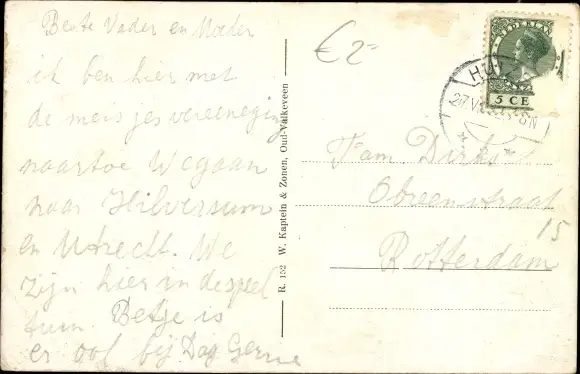 Beste Vader en Moeder
ik ben hier met
de meisjesvereeneging
naartoe We gaan
naar Hilversum
en Utrecht. We
zijn hier in de speel
tuin. Betje is
er ook bij. Dag Gerrie
R. 152 W. Kaptein & Zonen, Oud-Valkeveen
€ 2-
NEDERLAND
5 CE
HUI
27.VI
8N
Fam. Dirkse
straat
15
Rotterdam